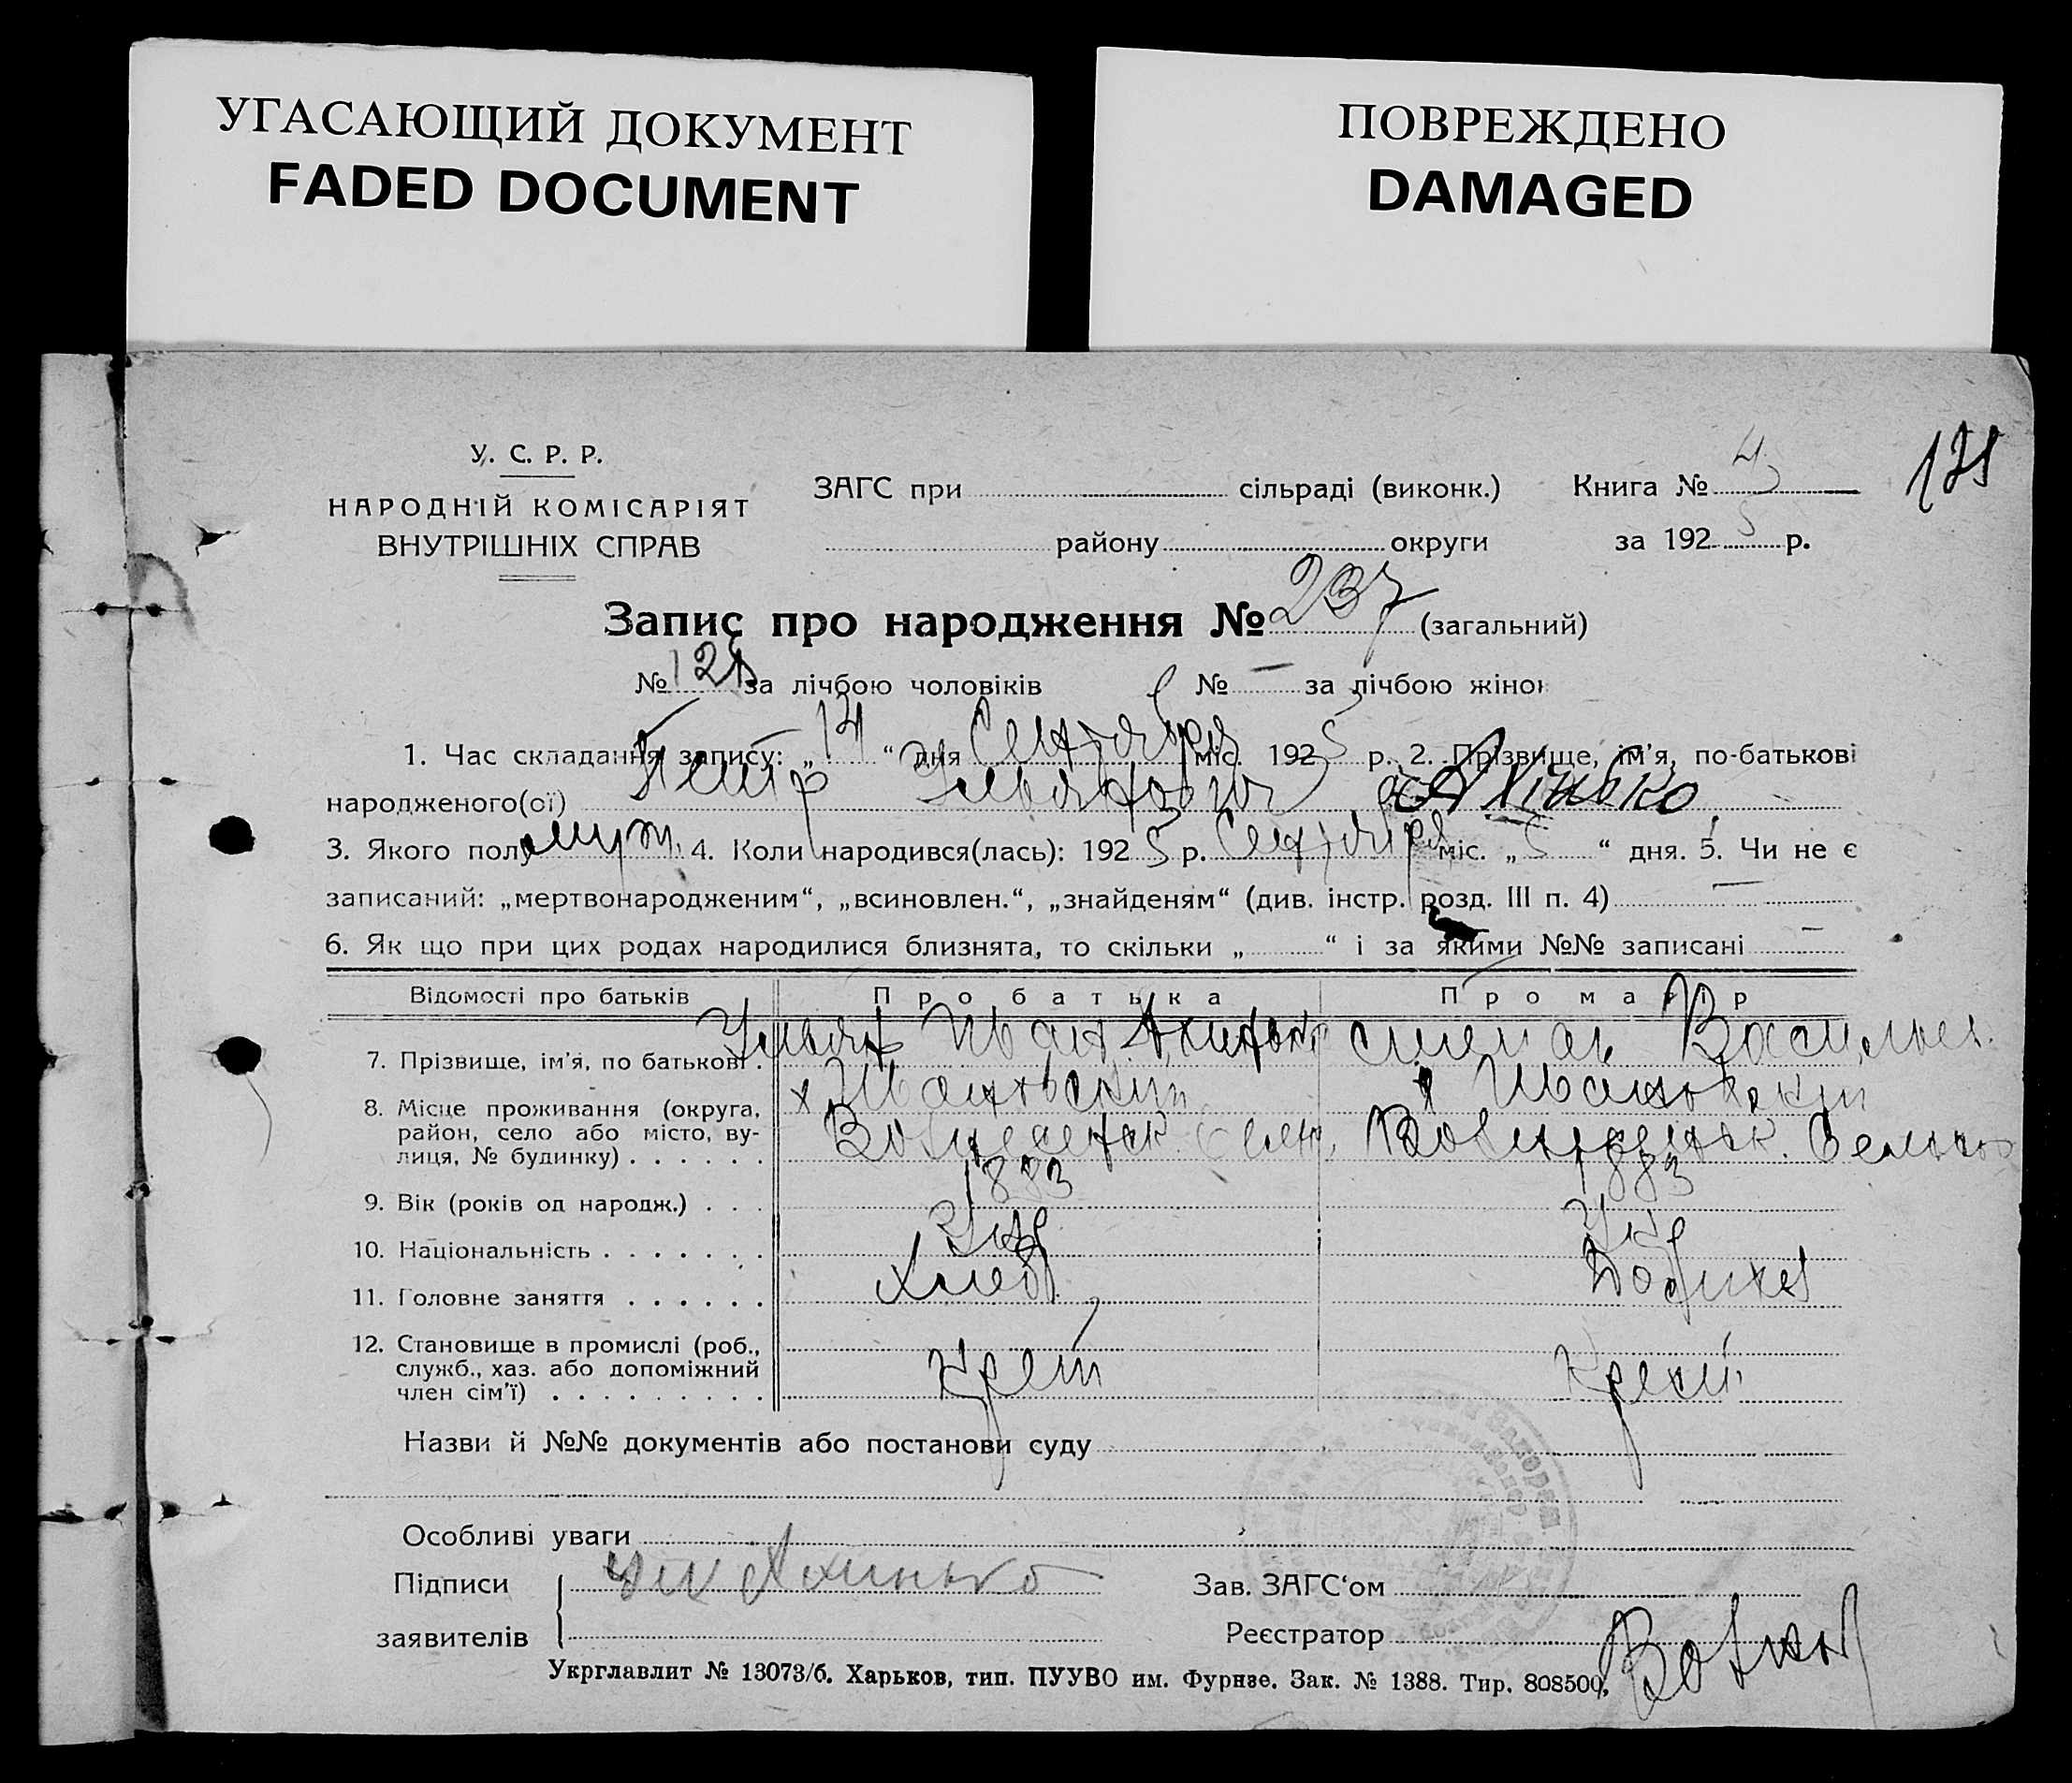 УГАСАЮЩИЙ ДОКУМЕНТ
FADED DOCUMENT
ПОВРЕЖДЕНО
DAMAGED
У. С. Р. Р.
НАРОДНІЙ КОМІСАРІЯТ
ВНУТРІШНІХ СПРАВ
ЗАГС при сільраді (виконк.)
району округи
Книга № 4
за 1925 р.
Запис про народження № 237 (загальний)
№ за лічбою чоловіків № — за лічбою жінок
1. Час складання запису: „14“ дня Сентября міс. 1925 р. 2. Прізвище, ім'я, по-батькові
народженого(ої) Петр Ульянович Ахинько
3. Якого полу муж. 4. Коли народився(лась): 1925 р. Сентября міс. „5“ дня. 5. Чи не є
записаний: „мертвонародженим“, „всиновлен.“, „знайденям“ (див. інстр. розд. III п. 4) —
6. Як що при цих родах народилися близнята, то скільки „ “ і за якими №№ записані —
Відомості про батьків Про батька Про матір
7. Прізвище, ім'я, по батькові . Ульян Иван Ахинько Васильев.
8. Місце проживання (округа, район, село або місто, вулиця, № будинку) . . . . . . х Ивановский х Ивановский
Вознесенск.
9. Вік (років од народж.) . . . 1883 1883
10. Національність . . . . . . . Укр Укр
11. Головне заняття . . . . . . Хлеб
12. Становище в промислі (роб., служб., хаз. або допоміжний член сім'ї) . . . . . . . . . Крест Крест
Назви й №№ документів або постанови суду
Особливі уваги
Підписи
заявителів
Ахинько
Зав. ЗАГС'ом
Реєстратор
Укрглавлит № 13073/б. Харьков, тип. ПУУВО им. Фурнзе. Зак. № 1388. Тир. 808500,